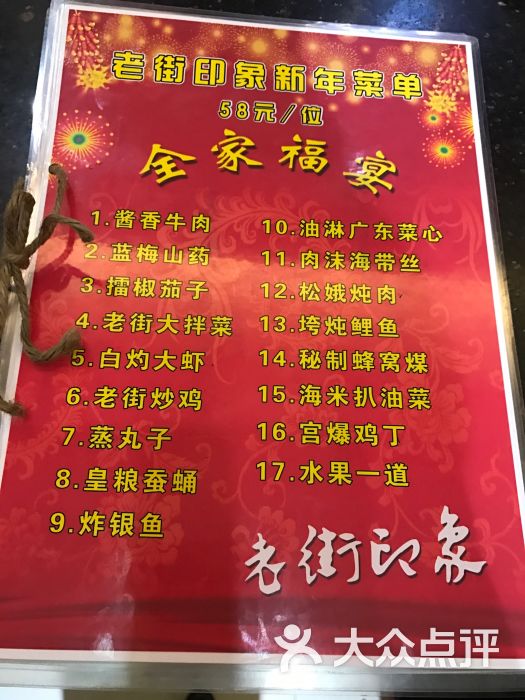 老街印象新年菜单
58元/位
全家福宴
1.酱香牛肉
2.蓝梅山药
3.擂椒茄子
4.老街大拌菜
5.白灼大虾
6.老街炒鸡
7.蒸丸子
8.皇粮蚕蛹
9.炸银鱼
10.油淋广东菜心
11.肉沫海带丝
12.松娥炖肉
13.垮炖鲤鱼
14.秘制蜂窝煤
15.海米扒油菜
16.宫爆鸡丁
17.水果一道
老街印象
大众点评